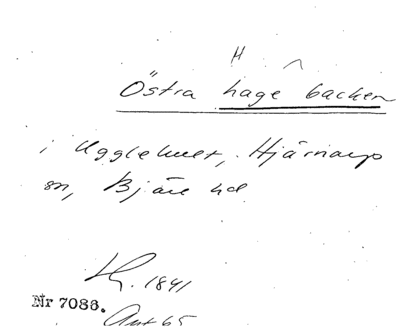 H
Östra hage backen
i Ugglehult, Hjärnarp
sn, Bjäre hd
1841
Nr 7086.
Ant 65